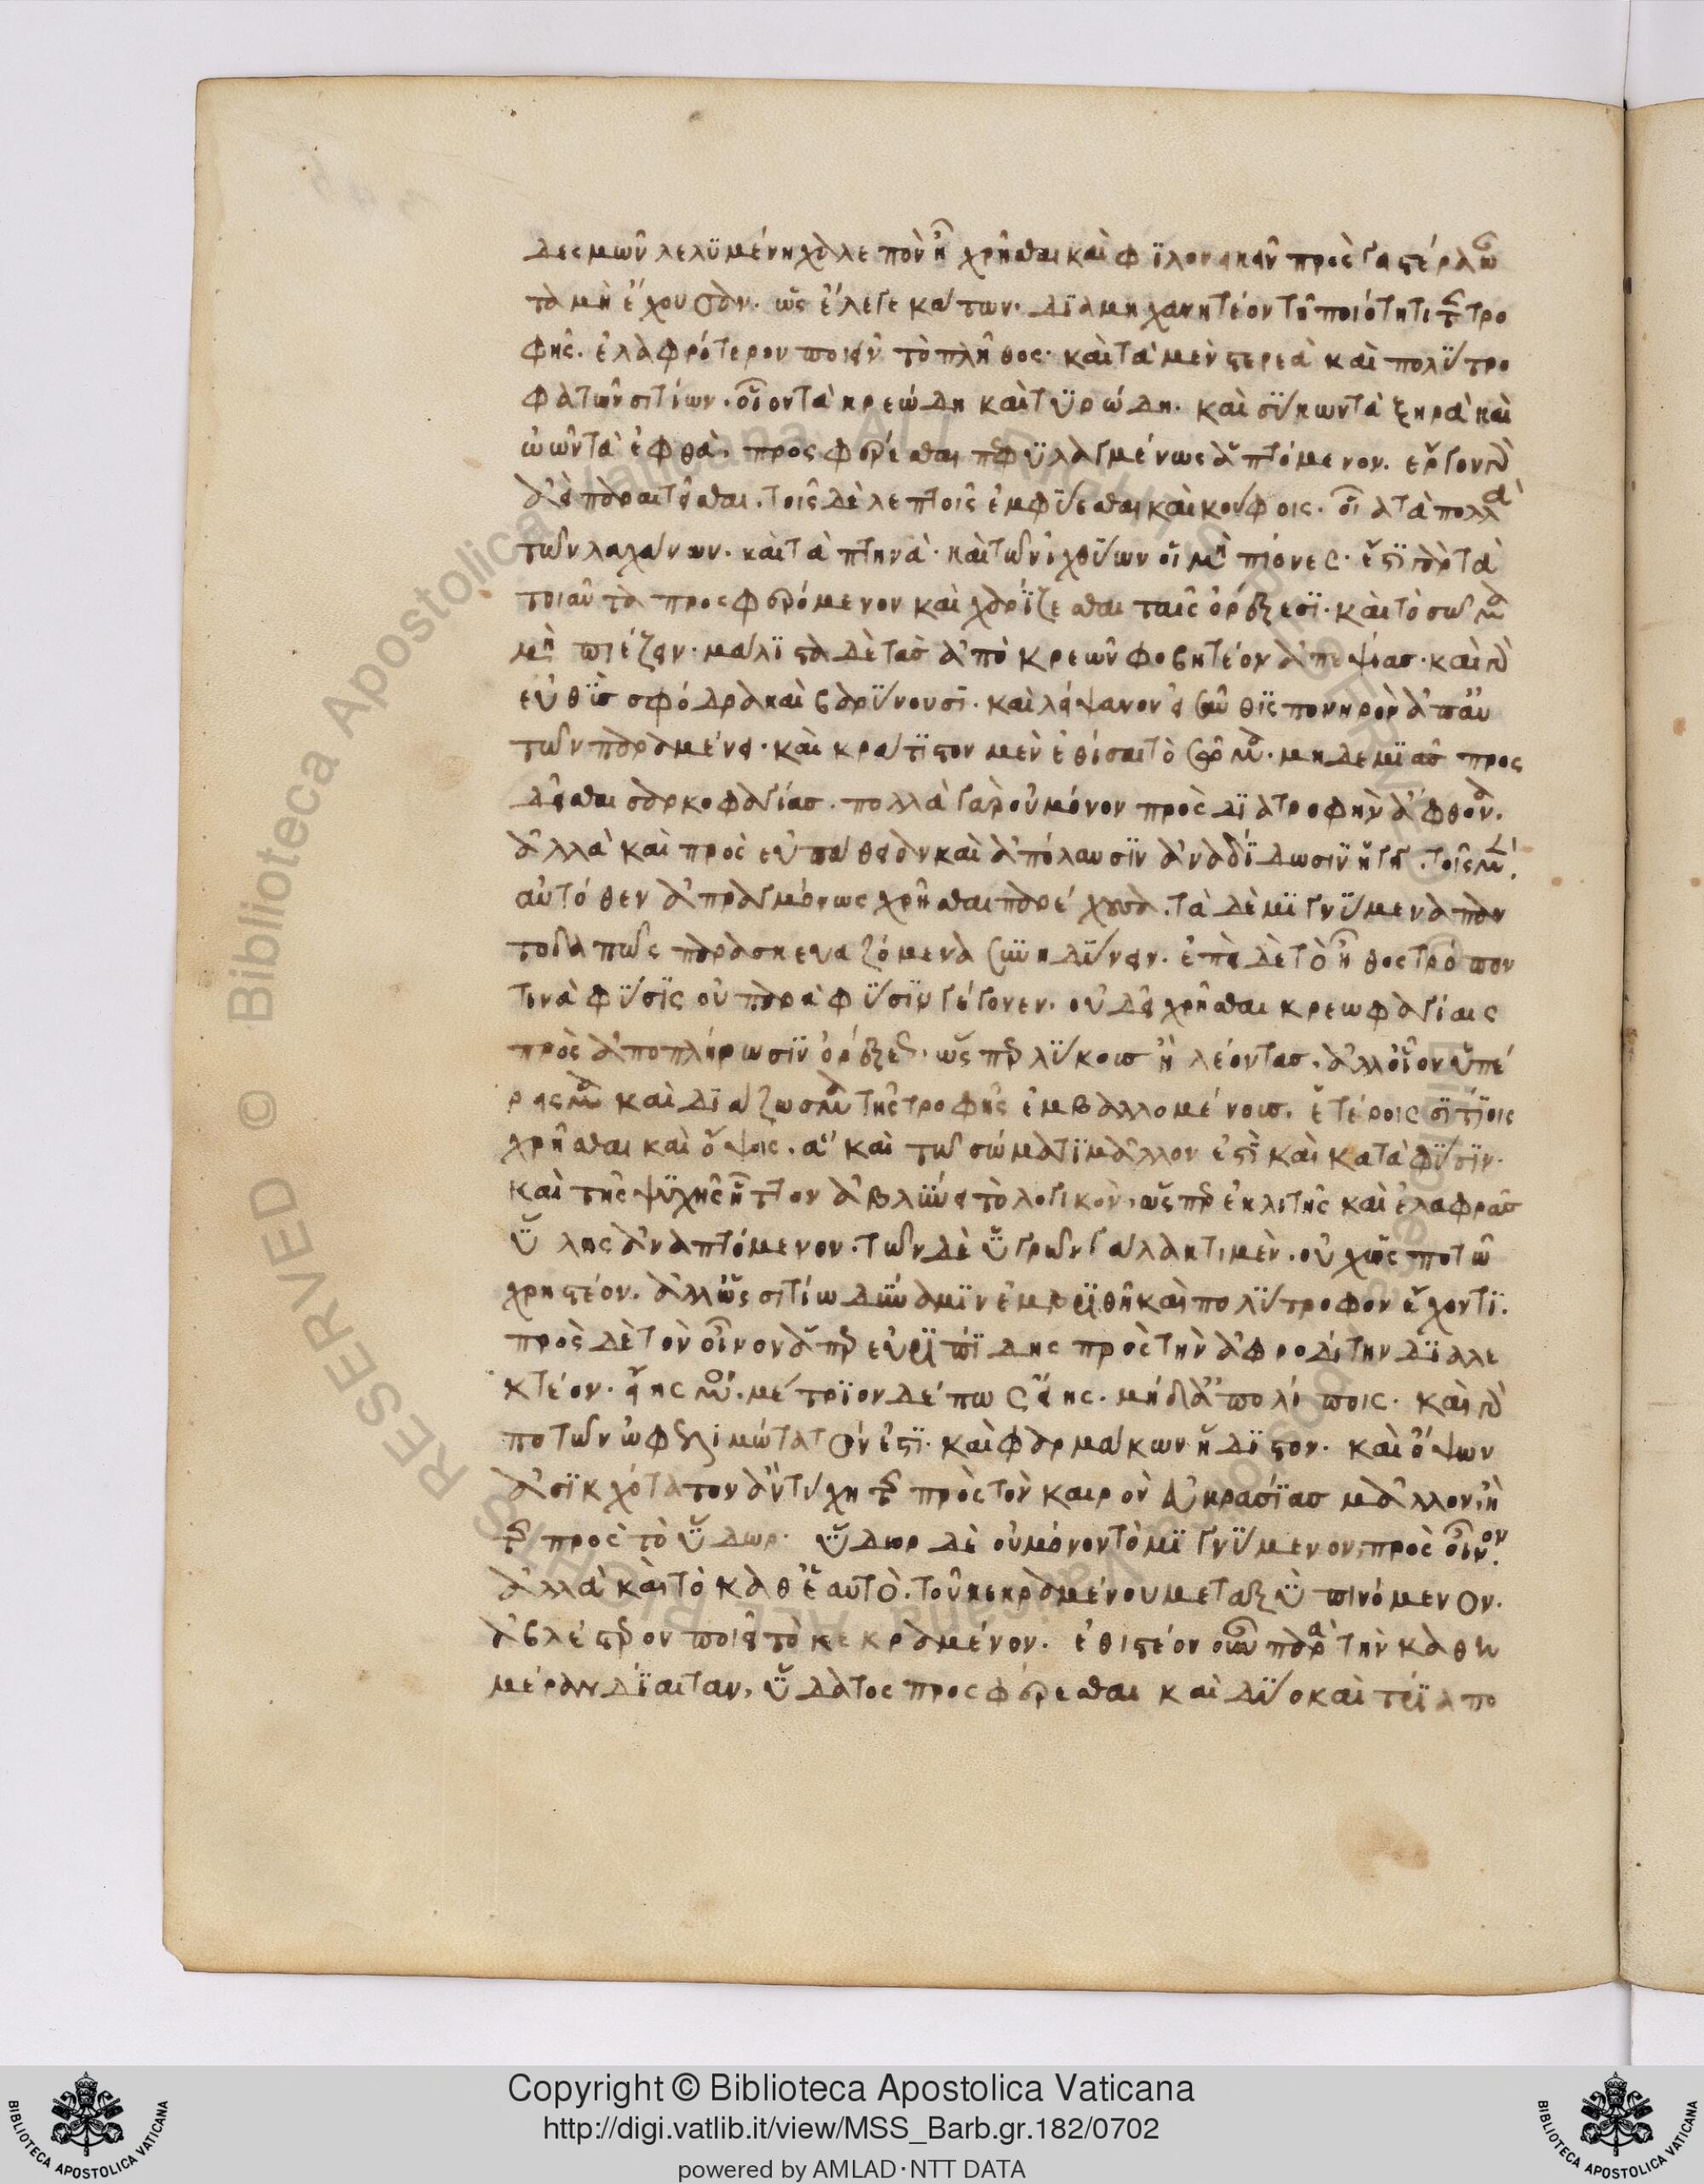 δεσμῶν λελυμένη χαλεπὸν ἦν χρῆσθαι καὶ φιλονεικεῖν πρὸς γαστέρα ὦ
τα μὴ ἔχουσαν. ὡς ἔλεγε κάτων. διαμηχανητέον τῇ ποιότητι τῆς τρο
φῆς. ἐλαφρότερον ποιεῖν τὸ πλῆθος· καὶ τὰ μὲν στερεὰ καὶ πολύτρο
φα τῶν σιτίων. οἷον τὰ κρεώδη καὶ τυρώδη. καὶ σύκων τὰ ξηρὰ καὶ
ὠῶν τὰ ἑφθὰ, προσφέρεσθαι πεφυλαγμένως ἁπτόμενον. ἔργον γὰρ
ἀεὶ παραιτεῖσθαι. τοῖς δὲ λεπτοῖς ἐμφύεσθαι καὶ κούφοις. οἷα τὰ πολλὰ
τῶν λαχάνων. καὶ τὰ πτηνά. καὶ τῶν ἰχθύων οἱ μὴ πίονες· ἔστι γὰρ τὰ
τοιαῦτα προσφερόμενον καὶ χαρίζεσθαι ταῖς ὀρέξεσι. καὶ τὸ σῶμα
μὴ πιέζειν. μάλιστα δὲ τὰς ἀπὸ κρεῶν φοβητέον ἀπεψίας. καὶ γὰρ
εὐθὺς σφόδρα καὶ βαρύνουσι. καὶ λείψανον εἰσαῦθις πονηρὸν ἀπ' αὐ
τῶν παραμένει. καὶ κράτιστον μὲν ἐθίσαι τὸ σῶμα. μηδεμιᾶς προσ
δεῖσθαι σαρκοφαγίας. πολλὰ γὰρ οὐ μόνον πρὸς διατροφὴν ἄφθονα.
ἀλλὰ καὶ πρὸς εὐπάθειαν καὶ ἀπόλαυσιν ἀναδίδωσιν ἡ γῆ. τοῖς μὲν
αὐτόθεν ἀπραγμόνως χρῆσθαι παρέχουσα. τὰ δὲ μιγνύμενα παν
τοδαπῶς παρασκευαζόμενα συνηδύνειν. ἐπεὶ δὲ τὸ ἦθος τρόπον
τινὰ φύσις οὐ παρὰ φύσιν γέγονεν. οὐ δεῖ χρῆσθαι κρεωφαγίαις
πρὸς ἀποπλήρωσιν ὀρέξεως. ὥσπερ λύκους ἢ λέοντας. ἀλλ' οἷον ὑπέ
ρεισμα καὶ διάζωσμα τῆς τροφῆς ἐμβαλλομένους. ἑτέροις σιτίοις
χρῆσθαι καὶ ὄψοις. ἃ καὶ τῷ σώματι μᾶλλον ἐστὶ καὶ κατὰ φύσιν.
καὶ τῆς ψυχῆς ἧττον ἀμβλύνει τὸ λογικὸν, ὥσπερ ἐκ λιτῆς καὶ ἐλαφρᾶς
ὕλης ἀναπτόμενον. τῶν δὲ ὑγρῶν γάλακτι μὲν. οὐχ ὡς ποτῷ
χρηστέον. ἀλλ' ὡς σιτίῳ δύναμιν ἐμβριθῆ καὶ πολύτροφον ἔχοντι.
πρὸς δὲ τὸν οἶνον ἅπερ εὐριπίδης πρὸς τὴν ἀφροδίτην διαλε
κτέον. εἴης μοι. μέτριον δέ πως εἴης. μήδ' ἀπολίποις. καὶ γὰρ
ποτῶν ὠφελιμώτατόν ἐστι. καὶ φαρμάκων ἥδιστον. καὶ ὄψων
ἀσικχότατον ἂν τύχῃ τῆς πρὸς τὸν καιρὸν εὐκρασίας μᾶλλον, ἢ
τῆς πρὸς τὸ ὕδωρ· ὕδωρ δὲ οὐ μόνον τὸ μιγνύμενον, πρὸς οἶνον.
ἀλλὰ καὶ τὸ καθ' ἑαυτὸ. τοῦ κεκραμένου μεταξὺ πινόμενον.
ἀβλαβέστερον ποιεῖ τὸ κεκραμένον. ἐθιστέον οὖν παρὰ τὴν καθη
μέραν δίαιταν, ὕδατος προσφέρεσθαι καὶ δύο καὶ τρία πο
Copyright © Biblioteca Apostolica Vaticana
http://digi.vatlib.it/view/MSS_Barb.gr.182/0702
powered by AMLAD·NTT DATA